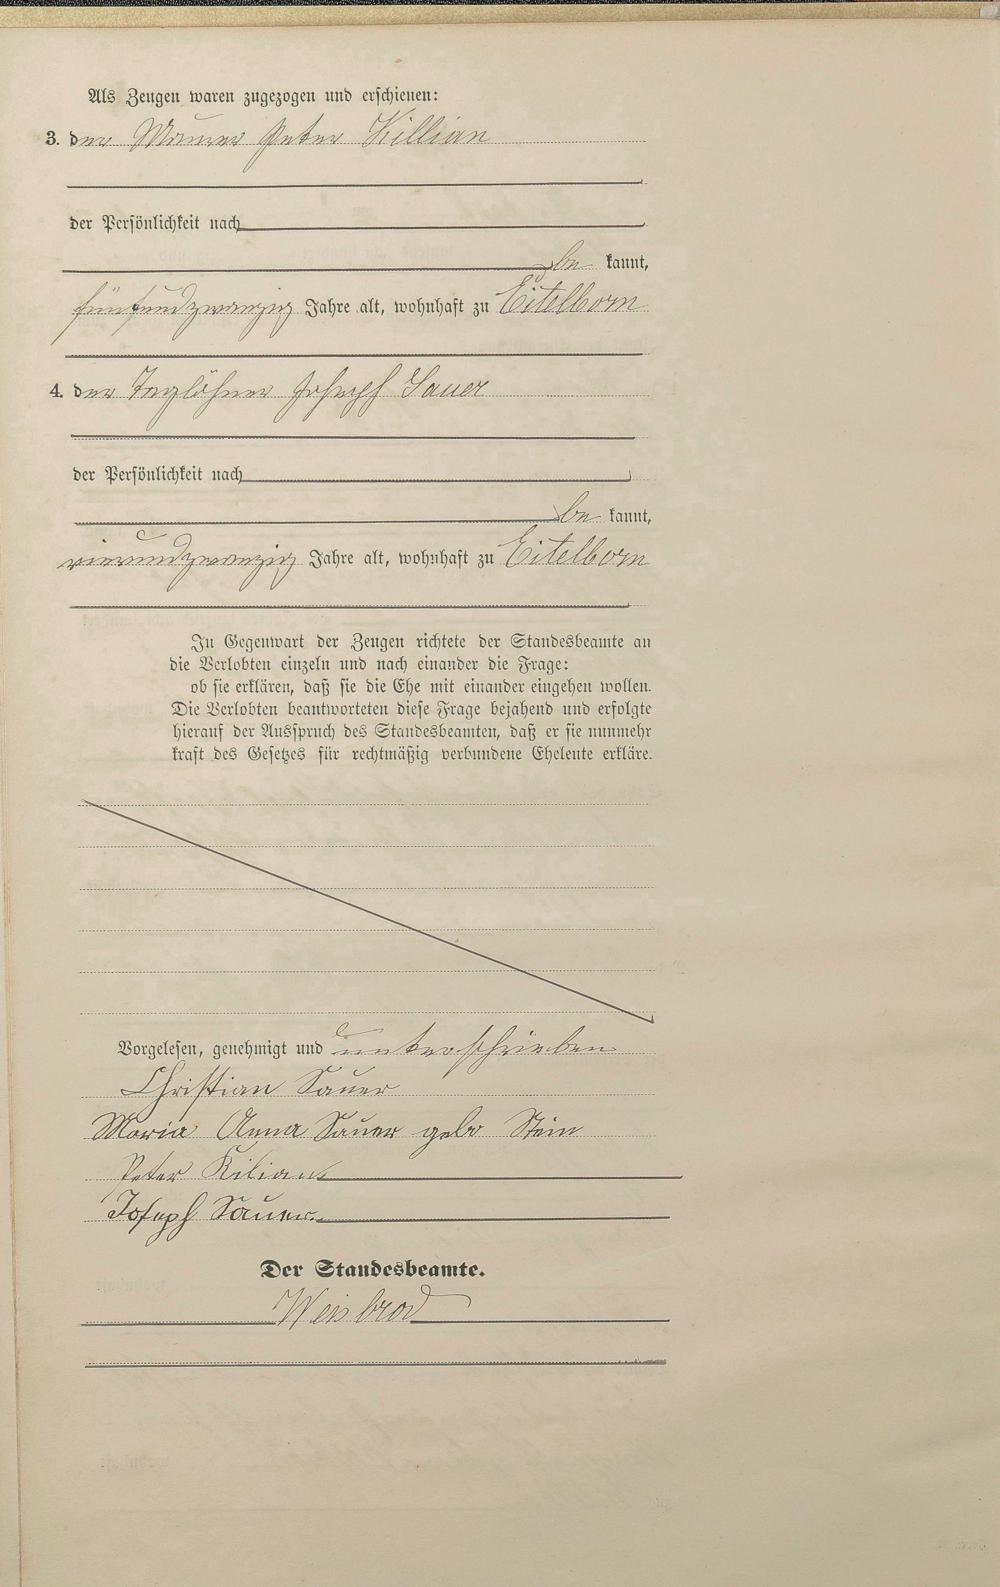 Als Zeugen waren zugezogen und erschienen:
3. der Maurer Peter Killian
der Persönlichkeit nach
be kannt,
fünfundzwanzig Jahre alt, wohnhaft zu Eitelborn
4. der Taglöhner Joseph Sauer
der Persönlichkeit nach
be kannt,
vierundzwanzig Jahre alt, wohnhaft zu Eitelborn
In Gegenwart der Zeugen richtete der Standesbeamte an
die Verlobten einzeln und nach einander die Frage:
ob sie erklären, daß sie die Ehe mit einander eingehen wollen.
Die Verlobten beantworteten diese Frage bejahend und erfolgte
hierauf der Ausspruch des Standesbeamten, daß er sie nunmehr
kraft des Gesetzes für rechtmäßig verbundene Eheleute erkläre.
Vorgelesen, genehmigt und unterschrieben
Christian Sauer
Maria Anna Sauer geb. Stein
Peter Kilian
Joseph Sauer.
Der Standesbeamte.
Weisbrod